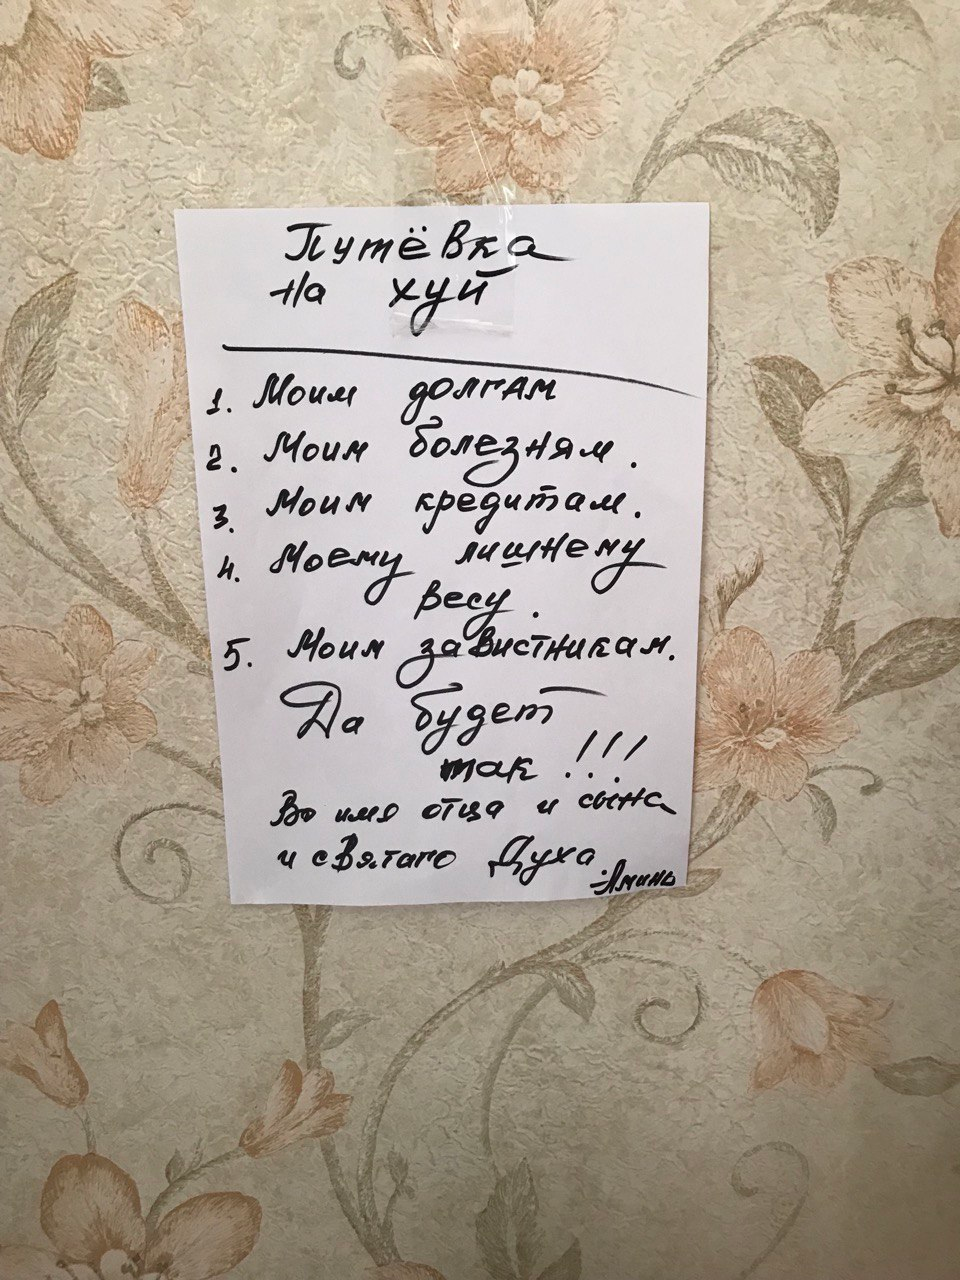 Путёвка
на хуй
1. Моим долгам
2. Моим болезням.
3. Моим кредитам.
4. Моему лишнему
весу.
5. Моим завистникам.
Да будет
так!!!
Во имя отца и сына
и святаго Духа
-Аминь